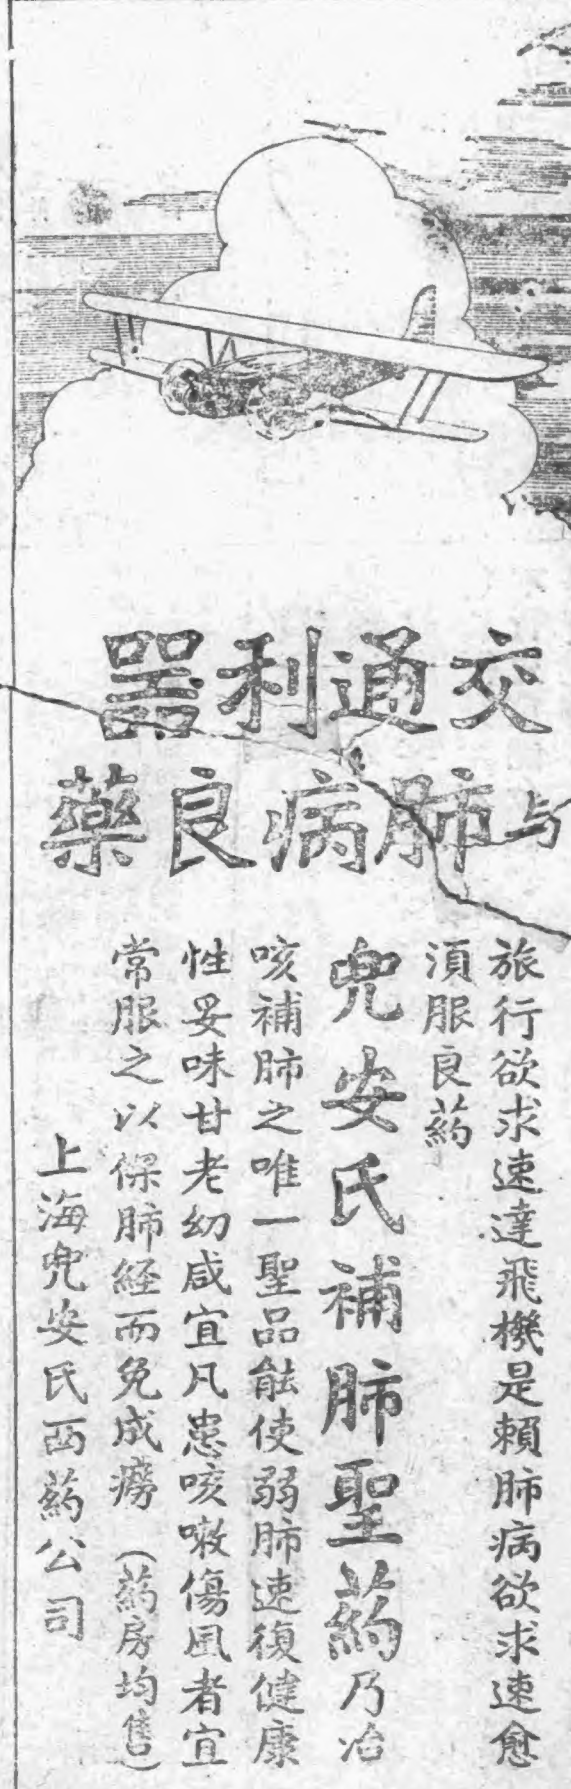 交通利器
与肺病良藥
旅行欲求速達飛機是賴肺病欲求速愈
須服良葯
兜安氏補肺聖葯乃治
咳補肺之唯一聖品能使弱肺速復健康
性妥味甘老幼咸宜凡患咳嗽傷風者宜
常服之以保肺經而免成癆（葯房均售）
上海兜安氏西葯公司